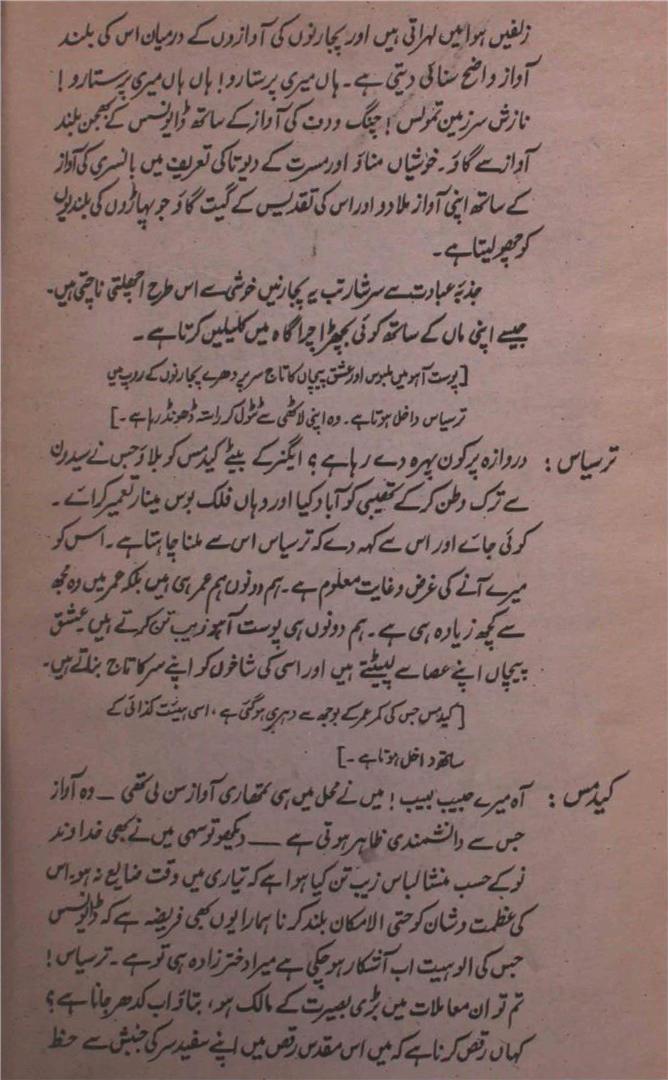 زلفیں ہوا میں لہراتی ہیں اور پجارنوں کی آوازوں کے درمیان اس کی بلند
آواز واضح سنائی دیتی ہے۔ ہاں میری پرستارو! ہاں ہاں میری پرستارو!
نازش سرزمین تمولس! چنگ و دف کی آواز کے ساتھ ڈایونسس کے بھجن بلند
آواز سے گاؤ۔ خوشیاں مناؤ اور مسرت کے دیوتا کی تعریف میں بانسری کی آواز
کے ساتھ اپنی آواز ملا دو اور اس کی تقدیس کے گیت گاؤ جو پہاڑوں کی بلندیوں
کو چھو لیتا ہے۔
جذبۂ عبادت سے سرشار تب یہ پجارنیں خوشی سے اس طرح اچھلتی ناچتی ہیں۔
جیسے اپنی ماں کے ساتھ کوئی بچھڑا چراگاہ میں کلیلیں کرتا ہے۔
[پوست آہو میں ملبوس اور عشق پیچاں کا تاج سر پر دھرے پجارنوں کے روپ میں
ترسیاس داخل ہوتا ہے۔ وہ اپنی لاٹھی سے ٹٹول کر راستہ ڈھونڈ رہا ہے۔]
ترسیاس : دروازہ پر کون پہرہ دے رہا ہے؟ ایگنر کے بیٹے کیڈمس کو بلاؤ جس نے سیدون
سے ترک وطن کر کے تھیبی کو آباد کیا اور وہاں فلک بوس مینار تعمیر کرائے۔
کوئی جائے اور اس سے کہہ دے کہ ترسیاس اس سے ملنا چاہتا ہے۔ اس کو
میرے آنے کی غرض و غایت معلوم ہے۔ ہم دونوں ہم عمر ہی ہیں بلکہ عمر میں وہ مجھ
سے کچھ زیادہ ہی ہے۔ ہم دونوں ہی پوست آہو زیب تن کرتے ہیں عشق
پیچاں اپنے عصا سے لپیٹتے ہیں اور اسی کی شاخوں کو اپنے سر کا تاج بناتے ہیں۔
[کیڈمس جس کی کمر عمر کے بوجھ سے دہری ہو گئی ہے، اسی ہیئت کذائی کے
ساتھ داخل ہوتا ہے۔]
کیڈمس : آہ میرے حبیب لبیب! میں نے محل میں ہی تمھاری آواز سن لی تھی — وہ آواز
جس سے دانشمندی ظاہر ہوتی ہے — دیکھو تو سہی میں نے بھی خداوند
نو کے حسب منشا لباس زیب تن کیا ہوا ہے کہ تیاری میں وقت ضایع نہ ہو۔ اس
کی عظمت و شان کو حتی الامکان بلند کرنا ہمارا یوں بھی فریضہ ہے کہ ڈایونسس
جس کی الوہیت اب آشکار ہو چکی ہے میرا دختر زادہ ہی تو ہے۔ ترسیاس!
تم تو ان معاملات میں بڑی بصیرت کے مالک ہو، بتاؤ اب کدھر جانا ہے؟
کہاں رقص کرنا ہے کہ میں اس مقدس رقص میں اپنے سفید سر کی جنبش سے حظ